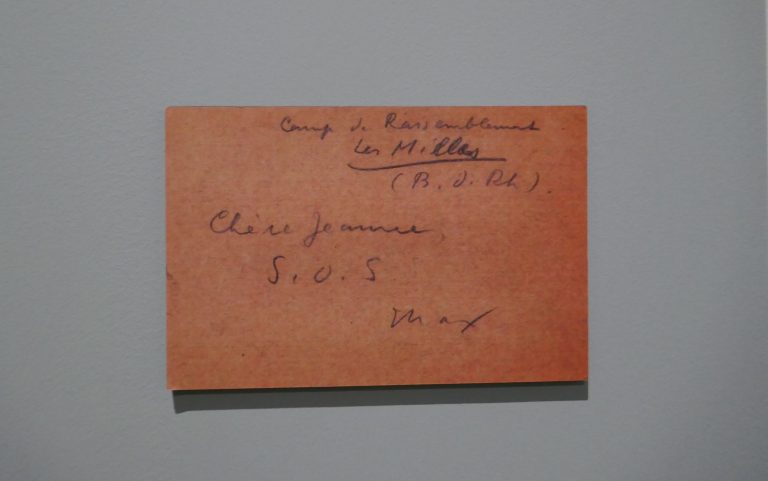 Camp de Rassemblement
Les Milles
(B. d. Rh).
Chère Jeanne,
S.O.S.
Max